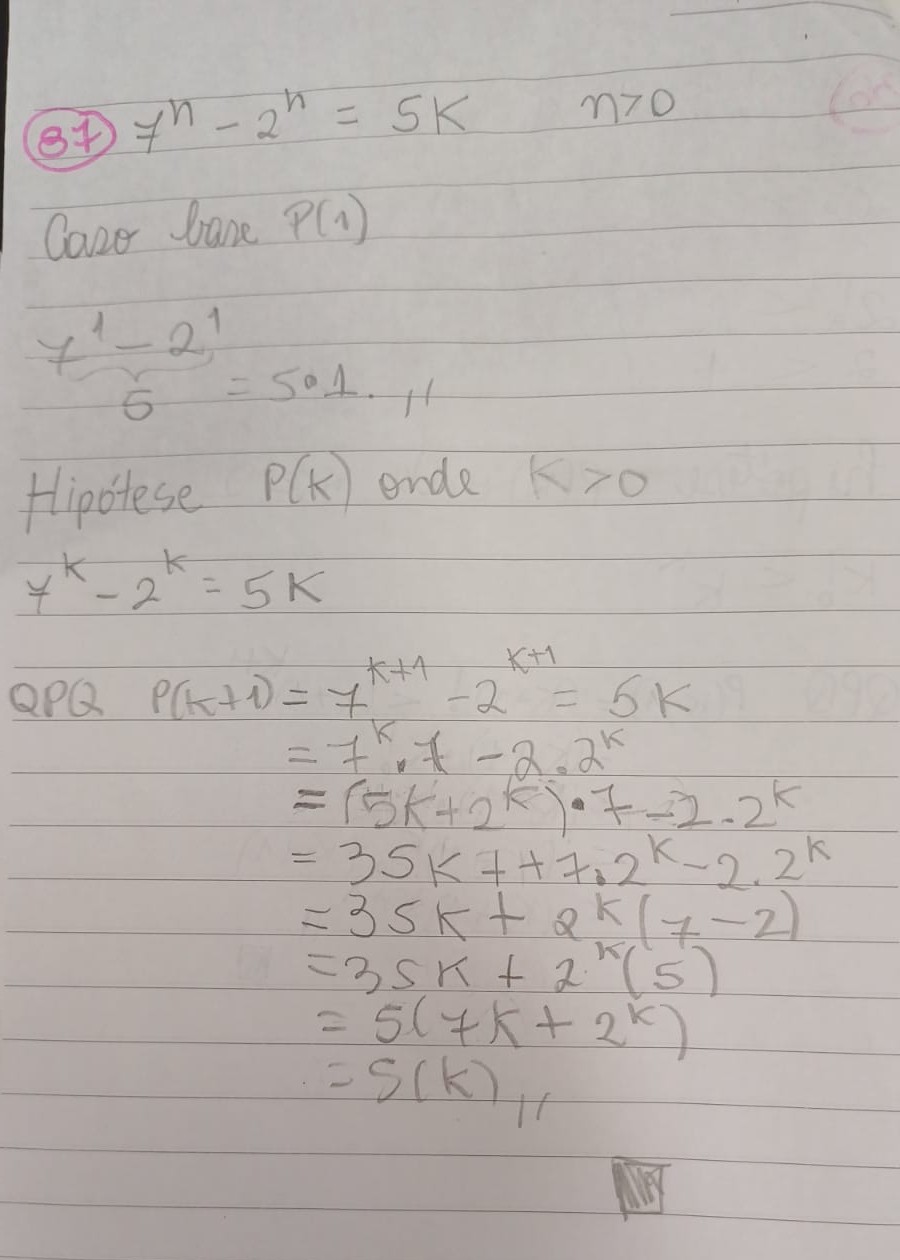 37 7ⁿ - 2ⁿ = 5K n>0
Caso base P(1)
7¹ - 2¹
5 = 5•1. //
Hipótese P(k) onde K>0
7^K - 2^K = 5K
QPQ P(K+1) = 7^K+1 - 2^K+1 = 5K
= 7^K . 7 - 2 . 2^K
= (5K + 2^K) • 7 - 2 . 2^K
= 35K 7 + 7 . 2^K - 2 . 2^K
= 35K + 2^K (7 - 2)
= 35K + 2^K (5)
= 5(7K + 2^K)
= 5(K) //